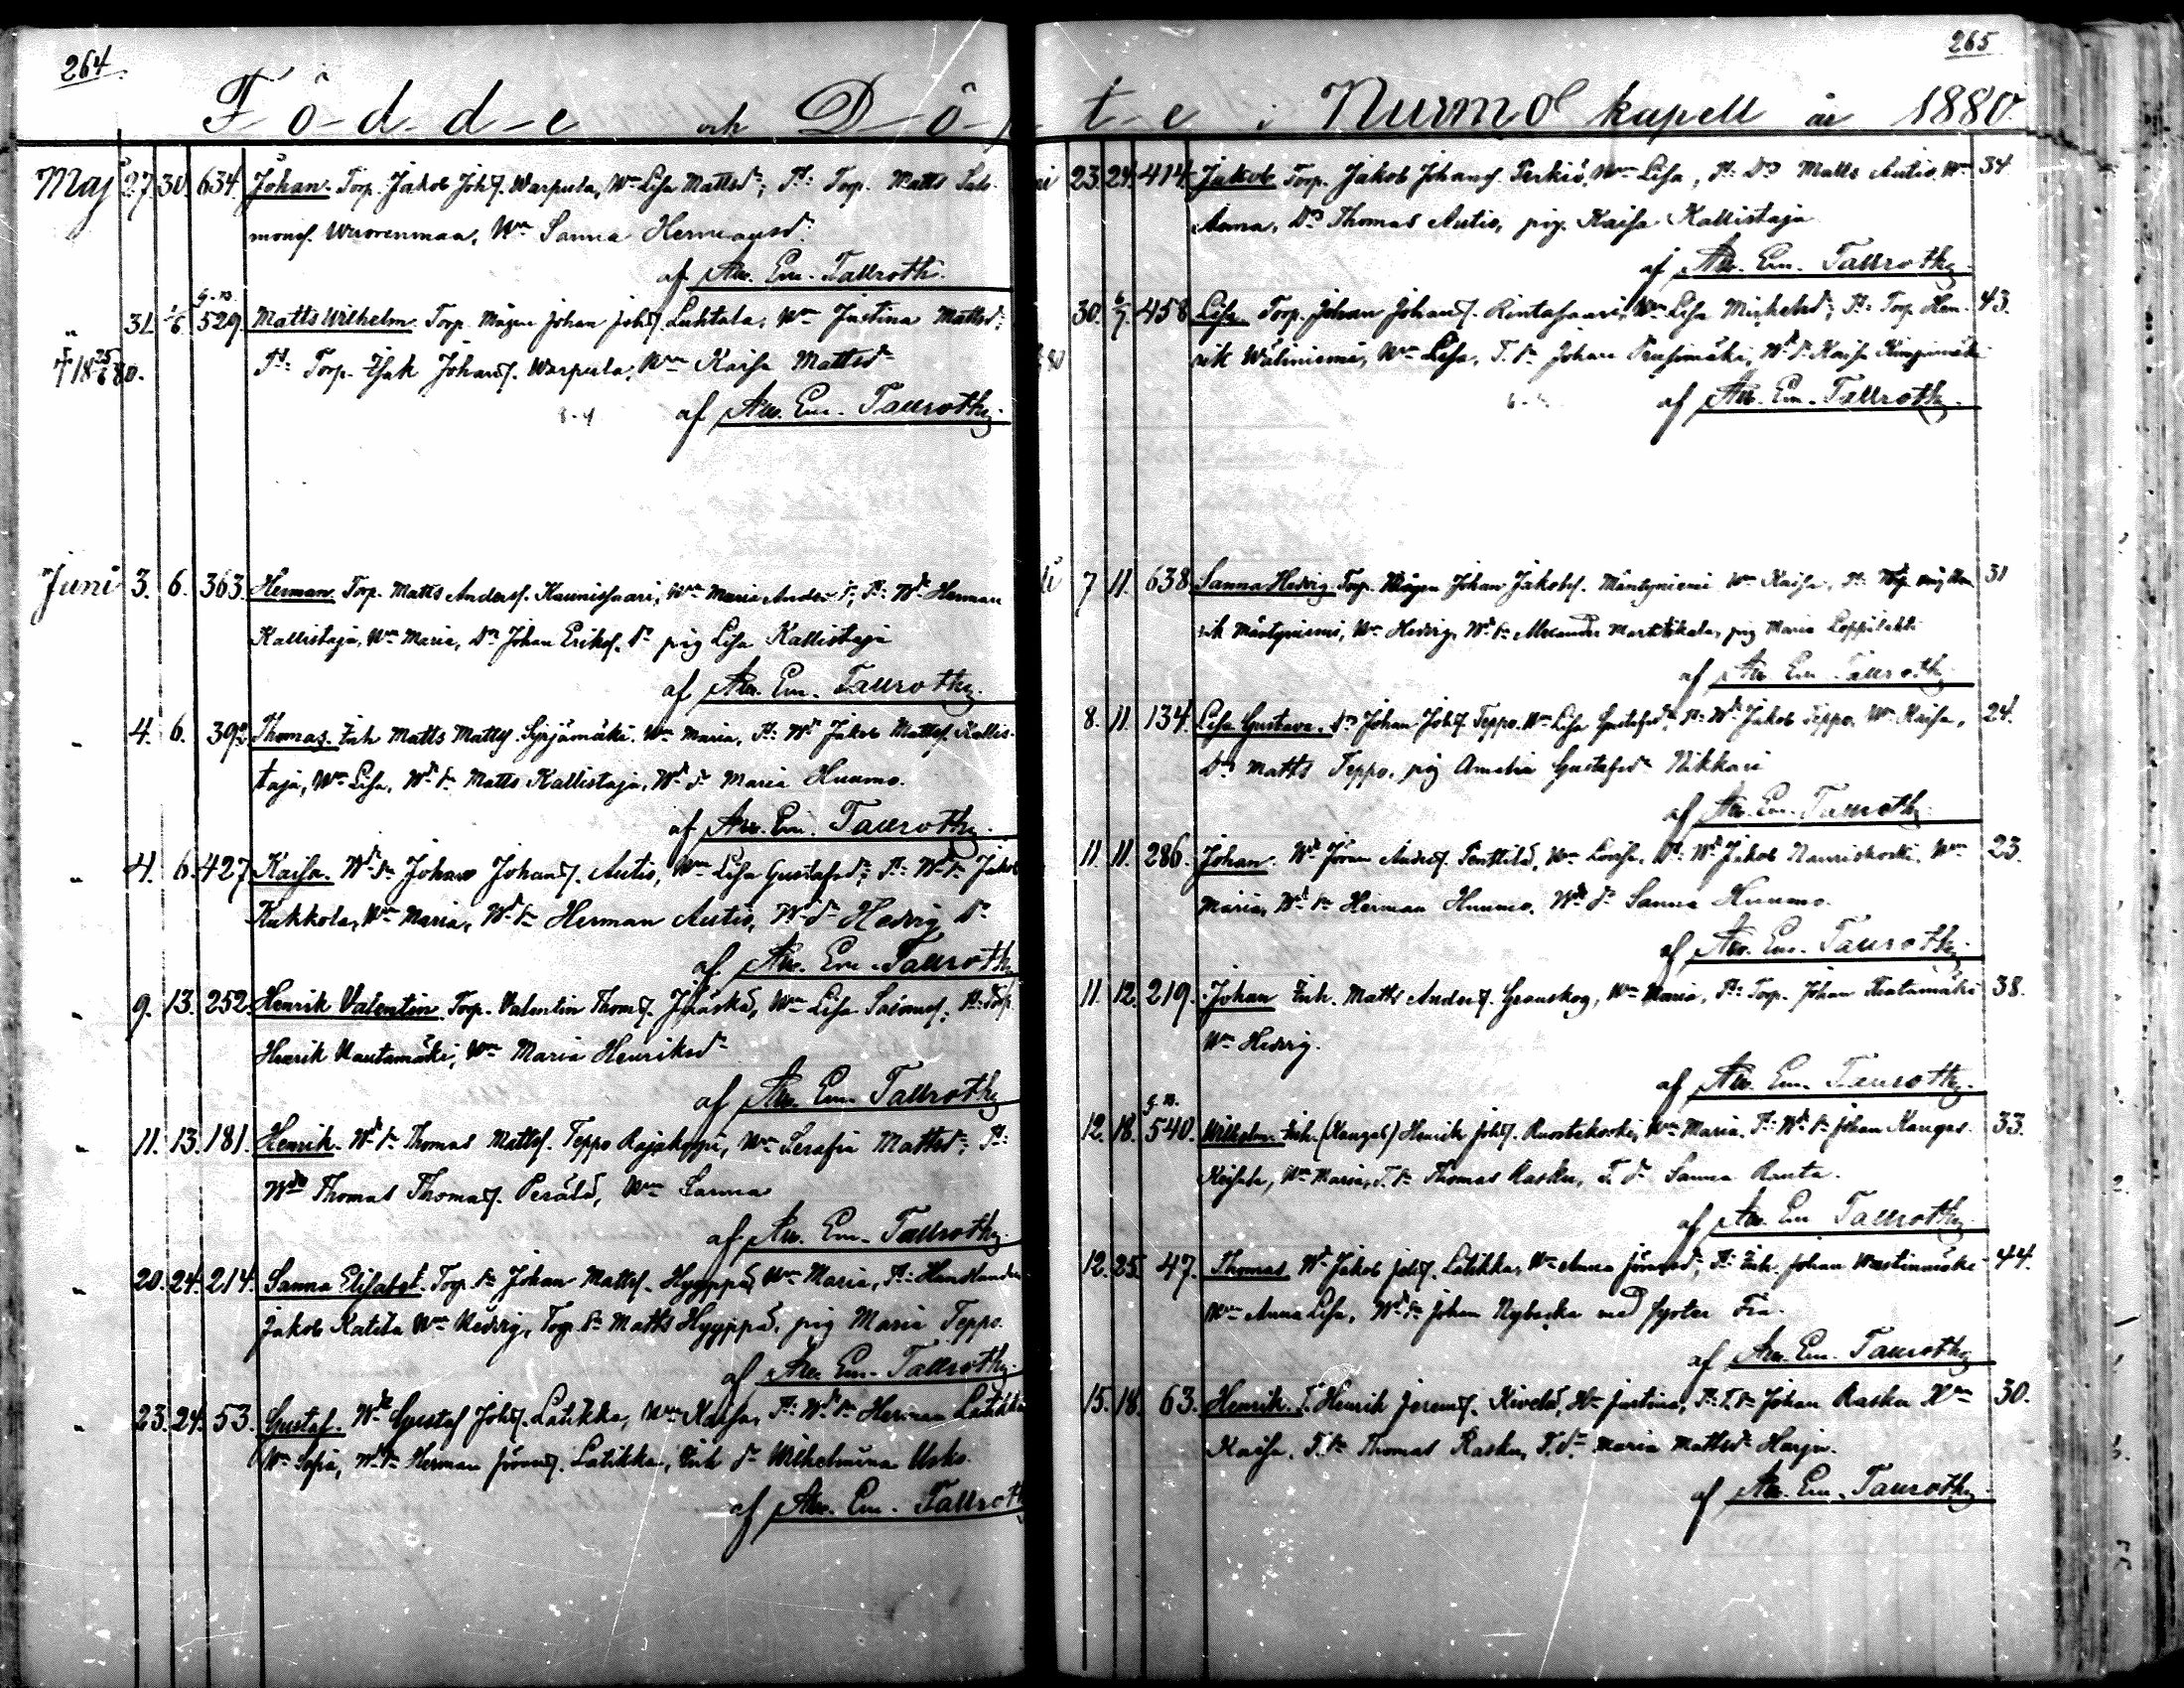 264
265
Födde och Döpte i Nurmo kapell år 1880.
Maj 27. 30. 634. Johan. Torp. Jakob Johs. Warpula, Wn Lisa Mattsdr; Ft: Torp. Matts Salo-
mons. Wuorenmaa, Wn Sanna Hermansdr
af Alb. Em. Tallroth.
g. n.
" 31. 1/6 529 Matts Wilhelm. Torp. Mågen Johan Johs. Luhtala, Wn Justina Mattsdr;
† 18 25/6 80. Ft: Torp. Isak Johans. Warpula, Wn Kaisa Mattsdr
af Alb. Em. Tallroth.
Juni 3. 6. 363. Herman. Torp. Matts Anders. Kaunissaari, Wn Maria Andersdr; Ft: Wd Herman
Kallistaja, Wn Maria, Dn Johan Eriks. Dn pig Lisa Kallistaja
af Alb. Em. Tallroth.
" 4. 6. 392. Thomas. Inh Matts Matts. Syrjämäki. Wn Maria, Ft: Wd Jakob Matts. Kallis-
taja, Wn Lisa, Wd Sn Matts Kallistaja, Wd dr Maria Huumo.
af Alb. Em. Tallroth.
" 4. 6. 427 Kaisa. Wd Sn Johan Johans. Autio, Wn Lisa Gustafsdr; Ft: Wd Sn Jakob
Kukkola, Wn Maria, Wd Sn Herman Autio, Wd dr Hedvig Dn
af Alb. Em. Tallroth
" 9. 13. 252. Henrik Valentin. Torp. Valentin Thoms. Jääskä, Wn Lisa Salomsd. Ft: Torp.
Henrik Rautamäki, Wn Maria Henriksdr
af Alb. Em. Tallroth
" 11. 13. 181. Henrik. Wd Sn Thomas Matts. Teppo Rajakoppi, Wn Serafia Mattsdr; Ft:
Wdn Thomas Thomas. Perälä, Wn Sanna
af Alb. Em. Tallroth.
" 20. 24. 214. Sanna Elisabet. Torp. Sn Johan Matts. Hyyppä, Wn Maria, Ft: Handlanden
Jakob Katila Wn Hedvig, Torp. Sn Matts Hyyppä, pig Maria Teppo.
af Alb. Em. Tallroth.
" 23. 24. 53. Gustaf. Wd Gustaf Johs. Latikka, Wn Kaisa, Ft: Wd Sn Herman Latikka
Wn Sofia, Wd Sn Herman Jörans. Latikka, Inh dr Wilhelmina Usko.
af Alb. Em. Tallroth
23. 24. 414. Jakob Torp. Jakob Johans. Perkiö, Wn Lisa, Ft: Dn Matts Autio, Wn 34.
Anna, Dn Thomas Autio, pig. Kaisa Kallistaja
af Alb. Em. Tallroth.
30. 6/7. 458 Lisa. Torp. Johan Johans. Rintasaari, Wn Lisa Mickelsdr; Ft: Torp. Hen- 43.
rik Wäliniemi, Wn Lisa, T. Sn Johan
af Alb. Em. Tallroth.
7 11. 638. Sanna Hedvig. Torp. Mågen Johan Jakobs. Mäntyniemi Wn Kaisa, Ft: 31
rik Mäntyniemi, Wn Hedvig, Wd Sn Alexander Marttikala, pig Maria Leppilahti
af Alb. Em. Tallroth.
8. 11. 134. Lisa Gustava. Dn Johan Johs. Teppo. Wn Lisa Gustafsdr, Ft: Wd Jakob Teppo, Wn Kaisa, 24.
Dn Matts Teppo, pig Amalia Gustafsdr Nikkari
af Alb. Em. Tallroth.
11. 11. 286. Johan. Wd Jöran Anders. Penttilä, Wn Lovisa, Ft: Wd Jakob Nauriskoski, Wn 23.
Maria, Wd Sn Herman Huumo, Wd dr Sanna Huumo.
af Alb. Em. Tallroth.
11. 12. 219. Johan Inh. Matts Anders. Granskog, Wn Maria, Ft: Torp. Johan Rautamäki 38.
Wn Hedvig.
af Alb. Em. Tallroth.
g. n.
12. 18. 540. Wilhelm. Inh. (Kangas) Henrik Johs. Ruostekoski, Wn Maria, Ft: Wd Sn Johan Kangas- 33.
Wn Maria, T. Sn Thomas Rasku, T. dr Sanna Ranta.
af Alb. Em. Tallroth.
12. 25. 47. Thomas Wd Jakob Johs. Latikka, Wn Anna Jöransdr, Ft: Inh. Johan Wästinmäki 44.
Wn Anna Lisa, Wd Sn Johan Nybacka med syster Fia.
af Alb. Em. Tallroth.
15. 18. 63. Henrik. T. Henrik Jerems. Kivelä, Wn Justina, Ft: T. Sn Johan Rasku Wn 30.
Kaisa, T. Sn Thomas Rasku, T. dr Maria Mattsdr Harju.
af Alb. Em. Tallroth.